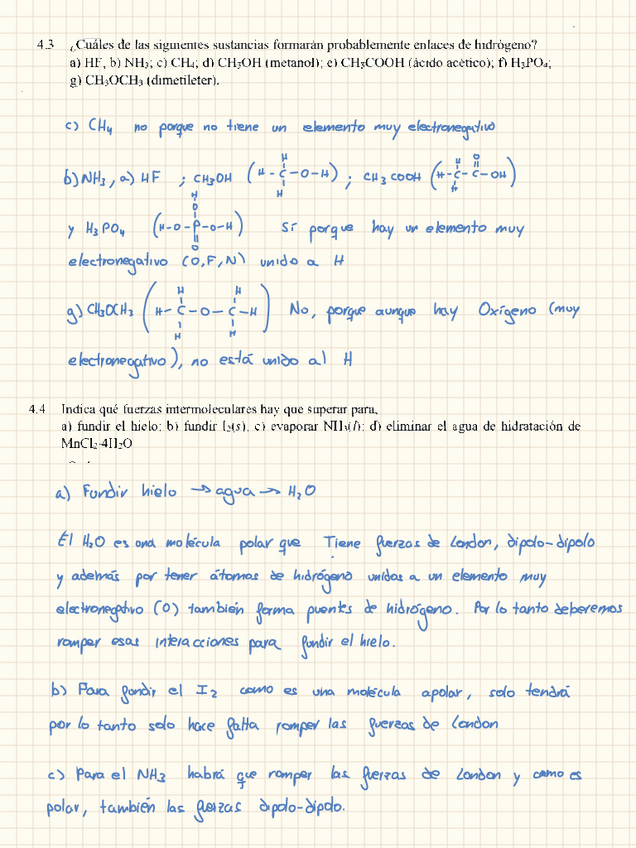 4.3 ¿Cuáles de las siguientes sustancias formarán probablemente enlaces de hidrógeno?
a) HF, b) NH₃; c) CH₄; d) CH₃OH (metanol); e) CH₃COOH (ácido acético); f) H₃PO₄;
g) CH₃OCH₃ (dimetileter).
c) CH₄ no porque no tiene un elemento muy electronegativo
b) NH₃, a) HF ; CH₃OH (H-C-O-H) ; CH₃COOH (H-C-C-OH)
y H₃PO₄ (H-O-P-O-H) Sí porque hay un elemento muy
electronegativo (O,F,N) unido a H
g) CH₃OCH₃ (H-C-O-C-H) No, porque aunque hay Oxígeno (muy
electronegativo), no está unido al H
4.4 Indica qué fuerzas intermoleculares hay que superar para,
a) fundir el hielo; b) fundir I₂(s), c) evaporar NH₃(l); d) eliminar el agua de hidratación de
MnCl₂·4H₂O
a) Fundir hielo → agua → H₂O
El H₂O es una molécula polar que Tiene fuerzas de London, dipolo-dipolo
y además por tener átomos de hidrógeno unidos a un elemento muy
electronegativo (O) también forma puentes de hidrógeno. Por lo tanto deberemos
romper esas interacciones para fundir el hielo.
b) Para fundir el I₂ como es una molécula apolar, solo tendrá
por lo tanto solo hace falta romper las fuerzas de London
c) Para el NH₃ habrá que romper las fuerzas de London y como es
polar, también las fuerzas dipolo-dipolo.